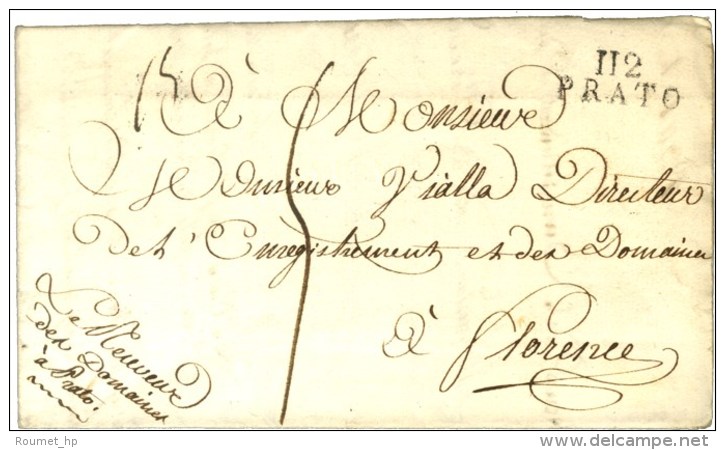 112
PRATO
15
À Monsieur
Monsieur Vialla Directeur
de l'Enregistrement et des Domaines
à Florence
Le Receveur
des Domaines
à Prato.
Roumet_hp
delcampe.net